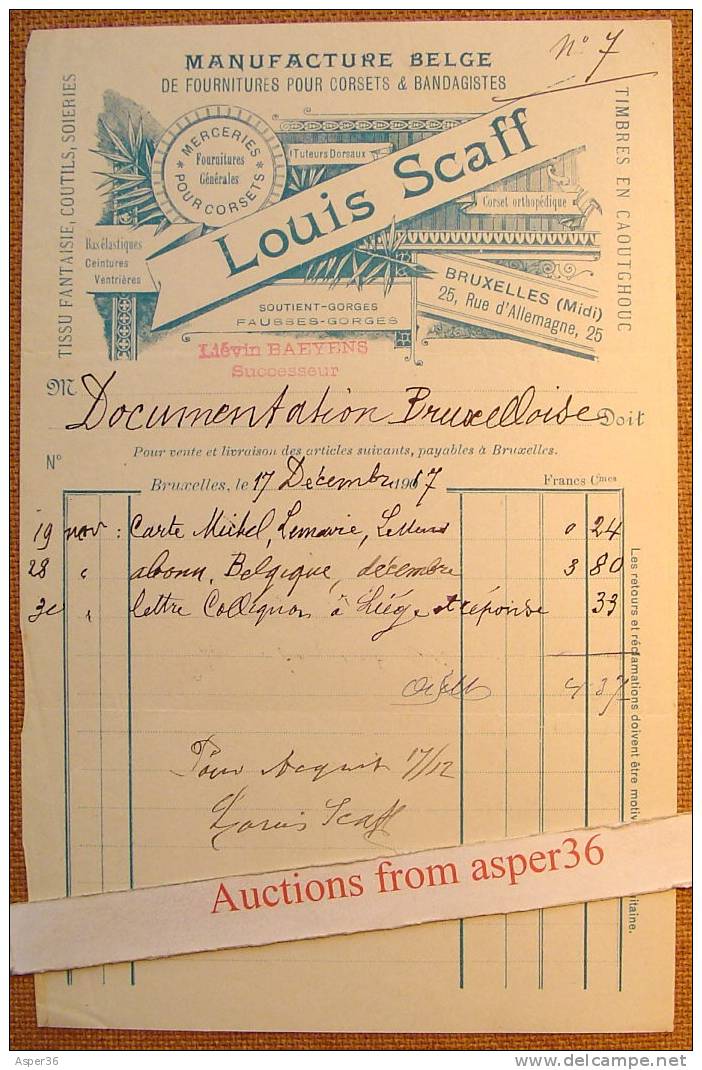 No 7
MANUFACTURE BELGE
DE FOURNITURES POUR CORSETS & BANDAGISTES
TISSU FANTAISIE, COUTILS, SOIERIES
TIMBRES EN CAOUTCHOUC
MERCERIES POUR CORSETS
Fournitures
Générales
Tuteurs Dorsaux
Louis Scaff
Corset orthopédique
Bas élastiques
Ceintures
Ventrières
BRUXELLES (Midi)
25, Rue d'Allemagne, 25
SOUTIENT-GORGES
FAUSSES-GORGES
Liévin BAEYENS
Successeur
M Documentation Bruxelloise Doit
Pour vente et livraison des articles suivants, payables à Bruxelles.
No
Bruxelles, le 17 Décembre 1907 Francs Cmes
19 nov : Carte Michel, Lemaire, 0 24
28 " abonn. Belgique, décembre 3 80
30 " lettre Collignon à Liége et réponse 33
4 37
Pour Acquit 17/12
Louis Scaff
Les retours et réclamations doivent être
Auctions from asper36
Asper36
delcampe.net